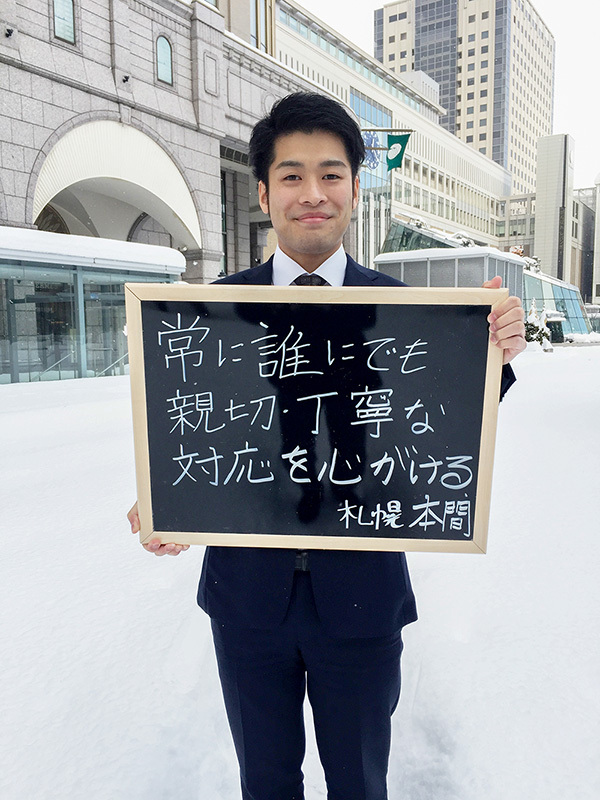 常に誰にでも
親切・丁寧な
対応を心がける
札幌 本間